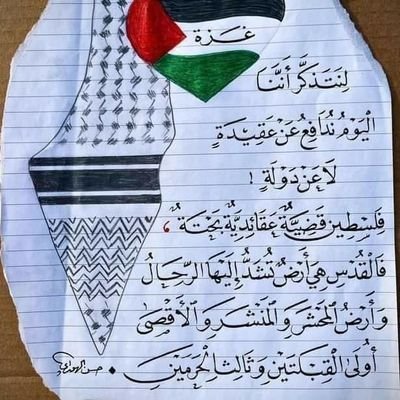 غزة
لِنَتَذَكَّر أَنَّنَا
الْيَوْمُ نُدَافِعُ عَنْ عَقِيدَةٍ
لَا عَنْ دَوْلَةٍ !
فَلِسْطِين قَضِيَّةٌ عَقَائِدِيَّةٌ بَحْتَةٌ ،
فَالْقُدْس هِيَ أَرْضٌ تُشَدُّ إِلَيْهَا الرِّحَالُ
وَأَرْضُ الْمَحْشَرِ وَالْمَنْشَرِ وَالْأَقْصَىٰ
أُولَىٰ الْقِبْلَتَيْنِ وَثَالِثُ الْحَرَمَيْنِ .